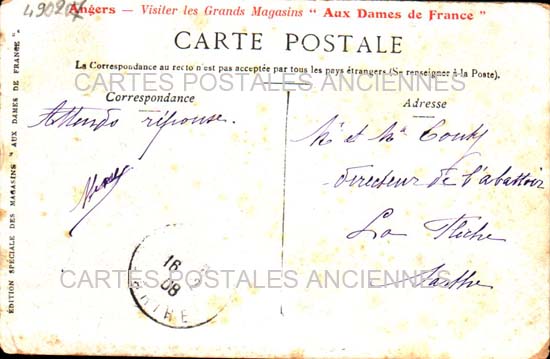 490207
Angers — Visiter les Grands Magasins “ Aux Dames de France ”
CARTE POSTALE
La Correspondance au recto n'est pas acceptée par tous les pays étrangers (Se renseigner à la Poste).
CARTES POSTALES ANCIENNES
Correspondance
Attends réponse.
Adresse
Mr et Me
Directeur de l'abattoir
La Flèche
Sarthe
16
08
CARTES POSTALES ANCIENNES
ÉDITION SPÉCIALE DES MAGASINS “ AUX DAMES DE FRANCE ”